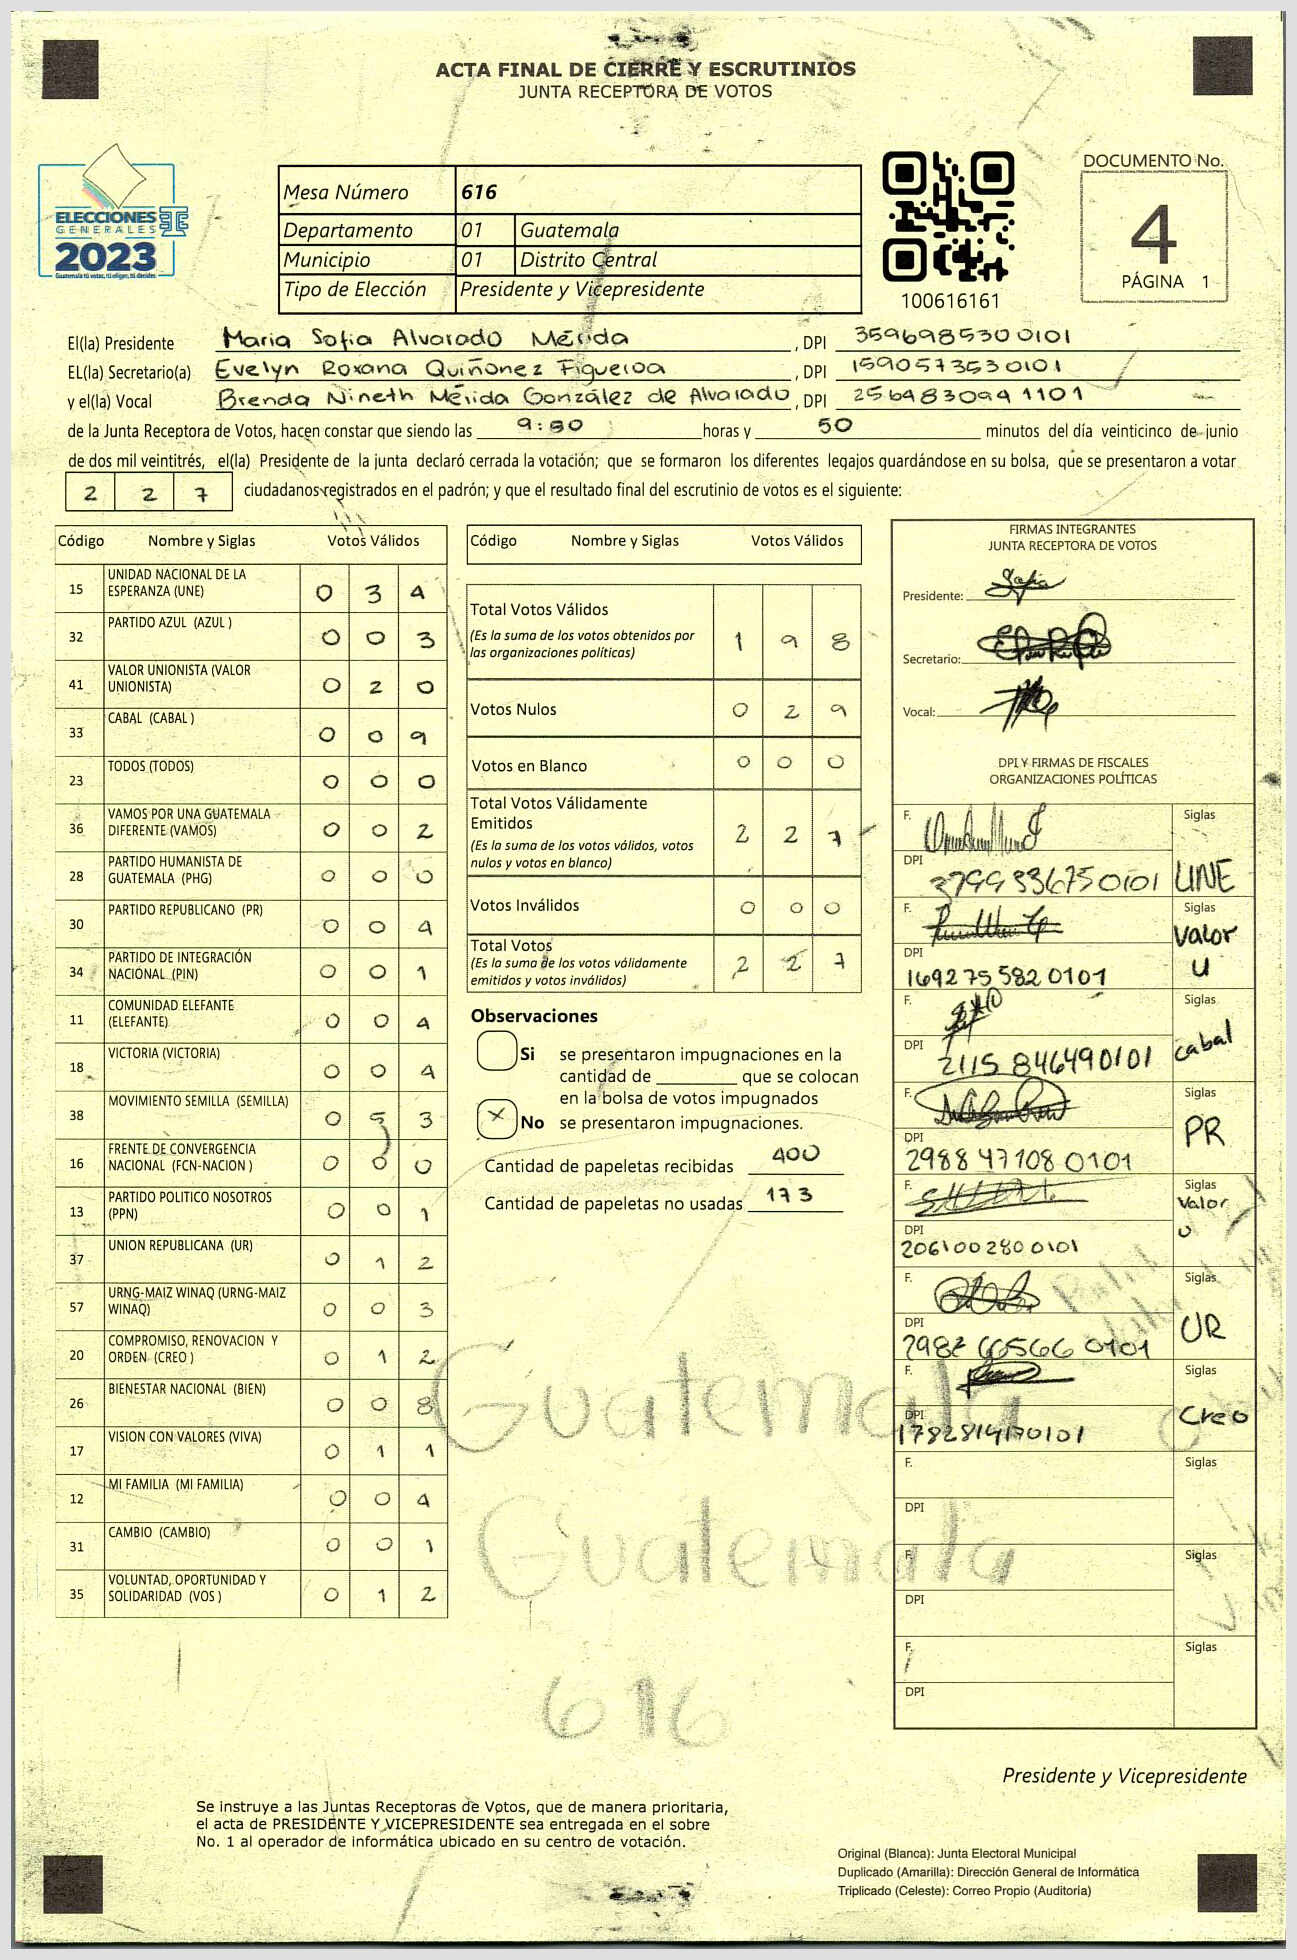 ACTA FINAL DE CIERRE Y ESCRUTINIOS
JUNTA RECEPTORA DE VOTOS
ELECCIONES
GENERALES
2023
Guatemala tú votas, tú eliges, tú decides
Mesa Número 616
Departamento 01 Guatemala
Municipio 01 Distrito Central
Tipo de Elección Presidente y Vicepresidente
100616161
DOCUMENTO No.
4
PÁGINA 1
El(la) Presidente Maria Sofia Alvarado Mérida, DPI 3596985300101
EL(la) Secretario(a) Evelyn Roxana Quiñonez Figueroa, DPI 1590573530101
y el(la) Vocal Brenda Nineth Mérida González de Alvarado, DPI 2564830991101
de la Junta Receptora de Votos, hacen constar que siendo las 9:50 horas y 50 minutos del día veinticinco de junio
de dos mil veintitrés, el(la) Presidente de la junta declaró cerrada la votación; que se formaron los diferentes legajos guardándose en su bolsa, que se presentaron a votar
2 2 7 ciudadanos registrados en el padrón; y que el resultado final del escrutinio de votos es el siguiente:
Código Nombre y Siglas Votos Válidos
15 UNIDAD NACIONAL DE LA ESPERANZA (UNE) 0 3 4
32 PARTIDO AZUL (AZUL ) 0 0 3
41 VALOR UNIONISTA (VALOR UNIONISTA) 0 2 0
33 CABAL (CABAL ) 0 0 9
23 TODOS (TODOS) 0 0 0
36 VAMOS POR UNA GUATEMALA DIFERENTE (VAMOS) 0 0 2
28 PARTIDO HUMANISTA DE GUATEMALA (PHG) 0 0 0
30 PARTIDO REPUBLICANO (PR) 0 0 4
34 PARTIDO DE INTEGRACIÓN NACIONAL (PIN) 0 0 1
11 COMUNIDAD ELEFANTE (ELEFANTE) 0 0 4
18 VICTORIA (VICTORIA) 0 0 4
38 MOVIMIENTO SEMILLA (SEMILLA) 0 5 3
16 FRENTE DE CONVERGENCIA NACIONAL (FCN-NACION ) 0 0 0
13 PARTIDO POLITICO NOSOTROS (PPN) 0 0 1
37 UNION REPUBLICANA (UR) 0 1 2
57 URNG-MAIZ WINAQ (URNG-MAIZ WINAQ) 0 0 3
20 COMPROMISO, RENOVACION Y ORDEN (CREO ) 0 1 2
26 BIENESTAR NACIONAL (BIEN) 0 0 8
17 VISION CON VALORES (VIVA) 0 1 1
12 MI FAMILIA (MI FAMILIA) 0 0 4
31 CAMBIO (CAMBIO) 0 0 1
35 VOLUNTAD, OPORTUNIDAD Y SOLIDARIDAD (VOS ) 0 1 2
Código Nombre y Siglas Votos Válidos
Total Votos Válidos 1 9 8
(Es la suma de los votos obtenidos por
las organizaciones políticas)
Votos Nulos 0 2 9
Votos en Blanco 0 0 0
Total Votos Válidamente
Emitidos 2 2 7
(Es la suma de los votos válidos, votos
nulos y votos en blanco)
Votos Inválidos 0 0 0
Total Votos 2 2 7
(Es la suma de los votos válidamente
emitidos y votos inválidos)
Observaciones
Si se presentaron impugnaciones en la
cantidad de ________ que se colocan
en la bolsa de votos impugnados
X No se presentaron impugnaciones.
Cantidad de papeletas recibidas 400
Cantidad de papeletas no usadas 173
FIRMAS INTEGRANTES
JUNTA RECEPTORA DE VOTOS
Presidente: Sofia
Secretario:
Vocal:
DPI Y FIRMAS DE FISCALES
ORGANIZACIONES POLÍTICAS
F. Siglas
DPI 3799936750101 UNE
F. Siglas
DPI 1692755820101 Valor U
F. Siglas
DPI 2115846490101 Cabal
F. Siglas
DPI 2988471080101 PR
F. Siglas
DPI 2061002800101 Valor U
F. Siglas
DPI 0101 UR
F. Siglas
DPI Creo
F. Siglas
DPI
F. Siglas
DPI
F. Siglas
DPI
Guatemala
Guatemala
616
Presidente y Vicepresidente
Se instruye a las Juntas Receptoras de Votos, que de manera prioritaria,
el acta de PRESIDENTE Y VICEPRESIDENTE sea entregada en el sobre
No. 1 al operador de informática ubicado en su centro de votación.
Original (Blanca): Junta Electoral Municipal
Duplicado (Amarilla): Dirección General de Informática
Triplicado (Celeste): Correo Propio (Auditoría)